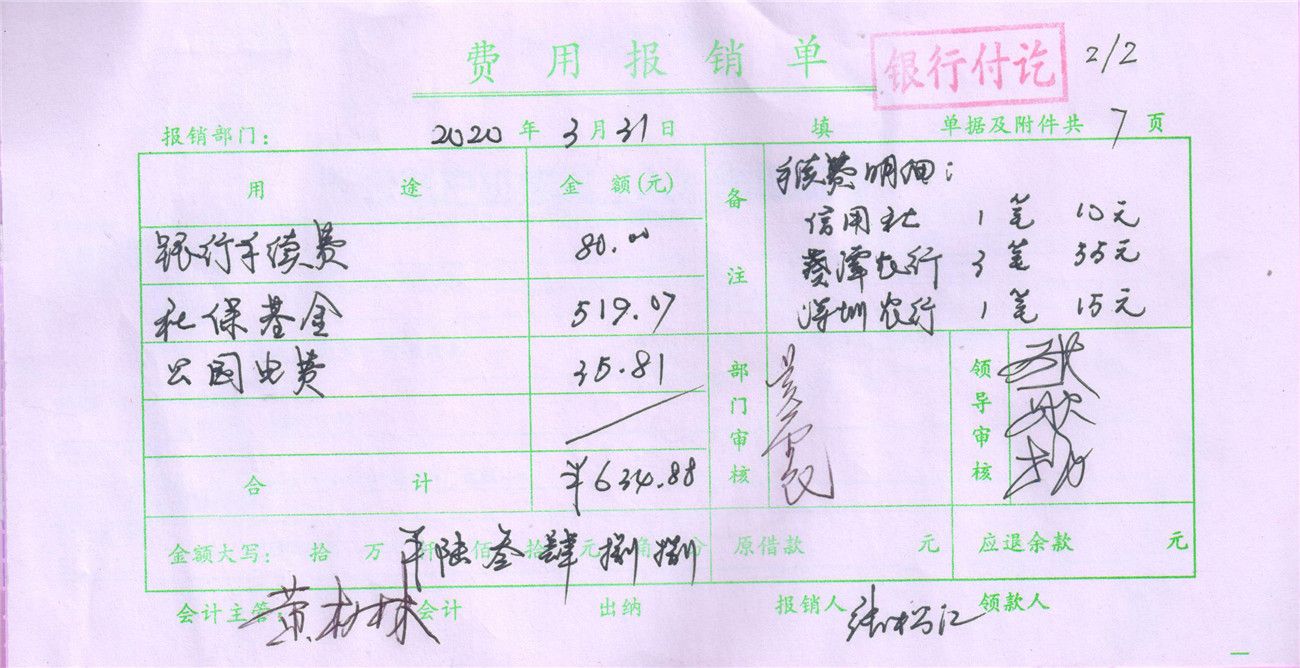 费用报销单 银行付讫 2/2
报销部门: 2020 年 3 月 31 日 填 单据及附件共 7 页
用途 金额(元) 备注 手续费明细:
信用社 1笔 10元
银行手续费 80.00 葵潭农行 3笔 55元
社保基金 519.07 深圳农行 1笔 15元
公园电费 35.81 部门审核 领导审核
合计 ¥634.88
金额大写: 拾 万 仟 佰 拾 元 角 分 ¥陆叁肆捌捌 原借款 元 应退余款 元
会计主管: 会计 出纳 报销人 领款人